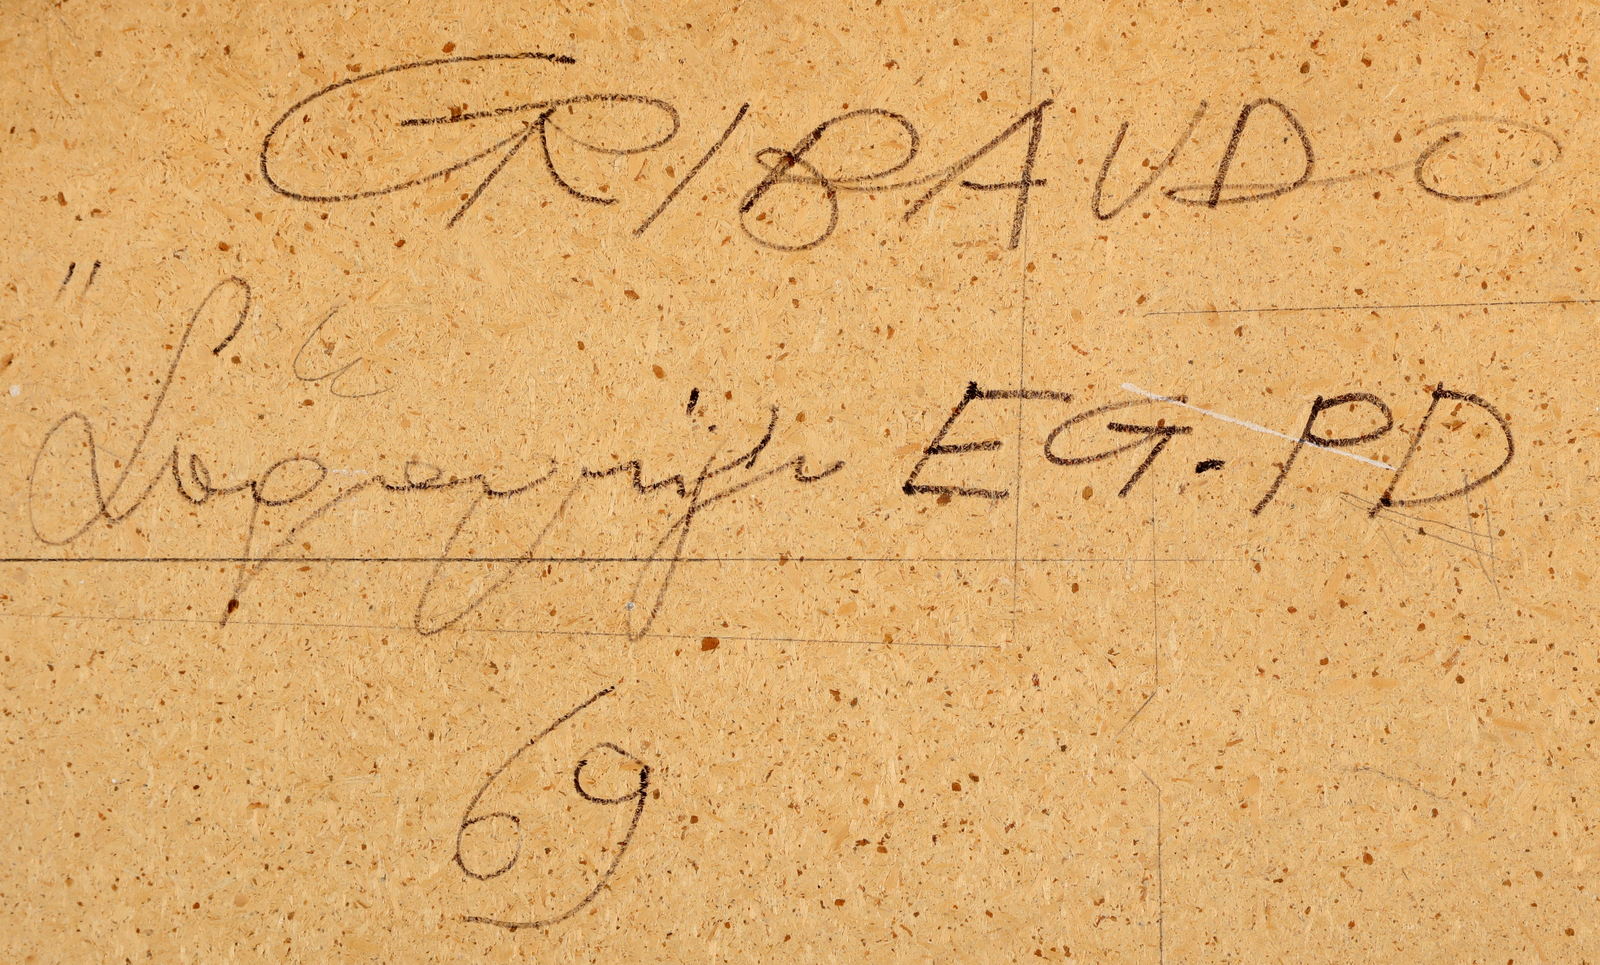 GRIBAUDO
EG. PD
69